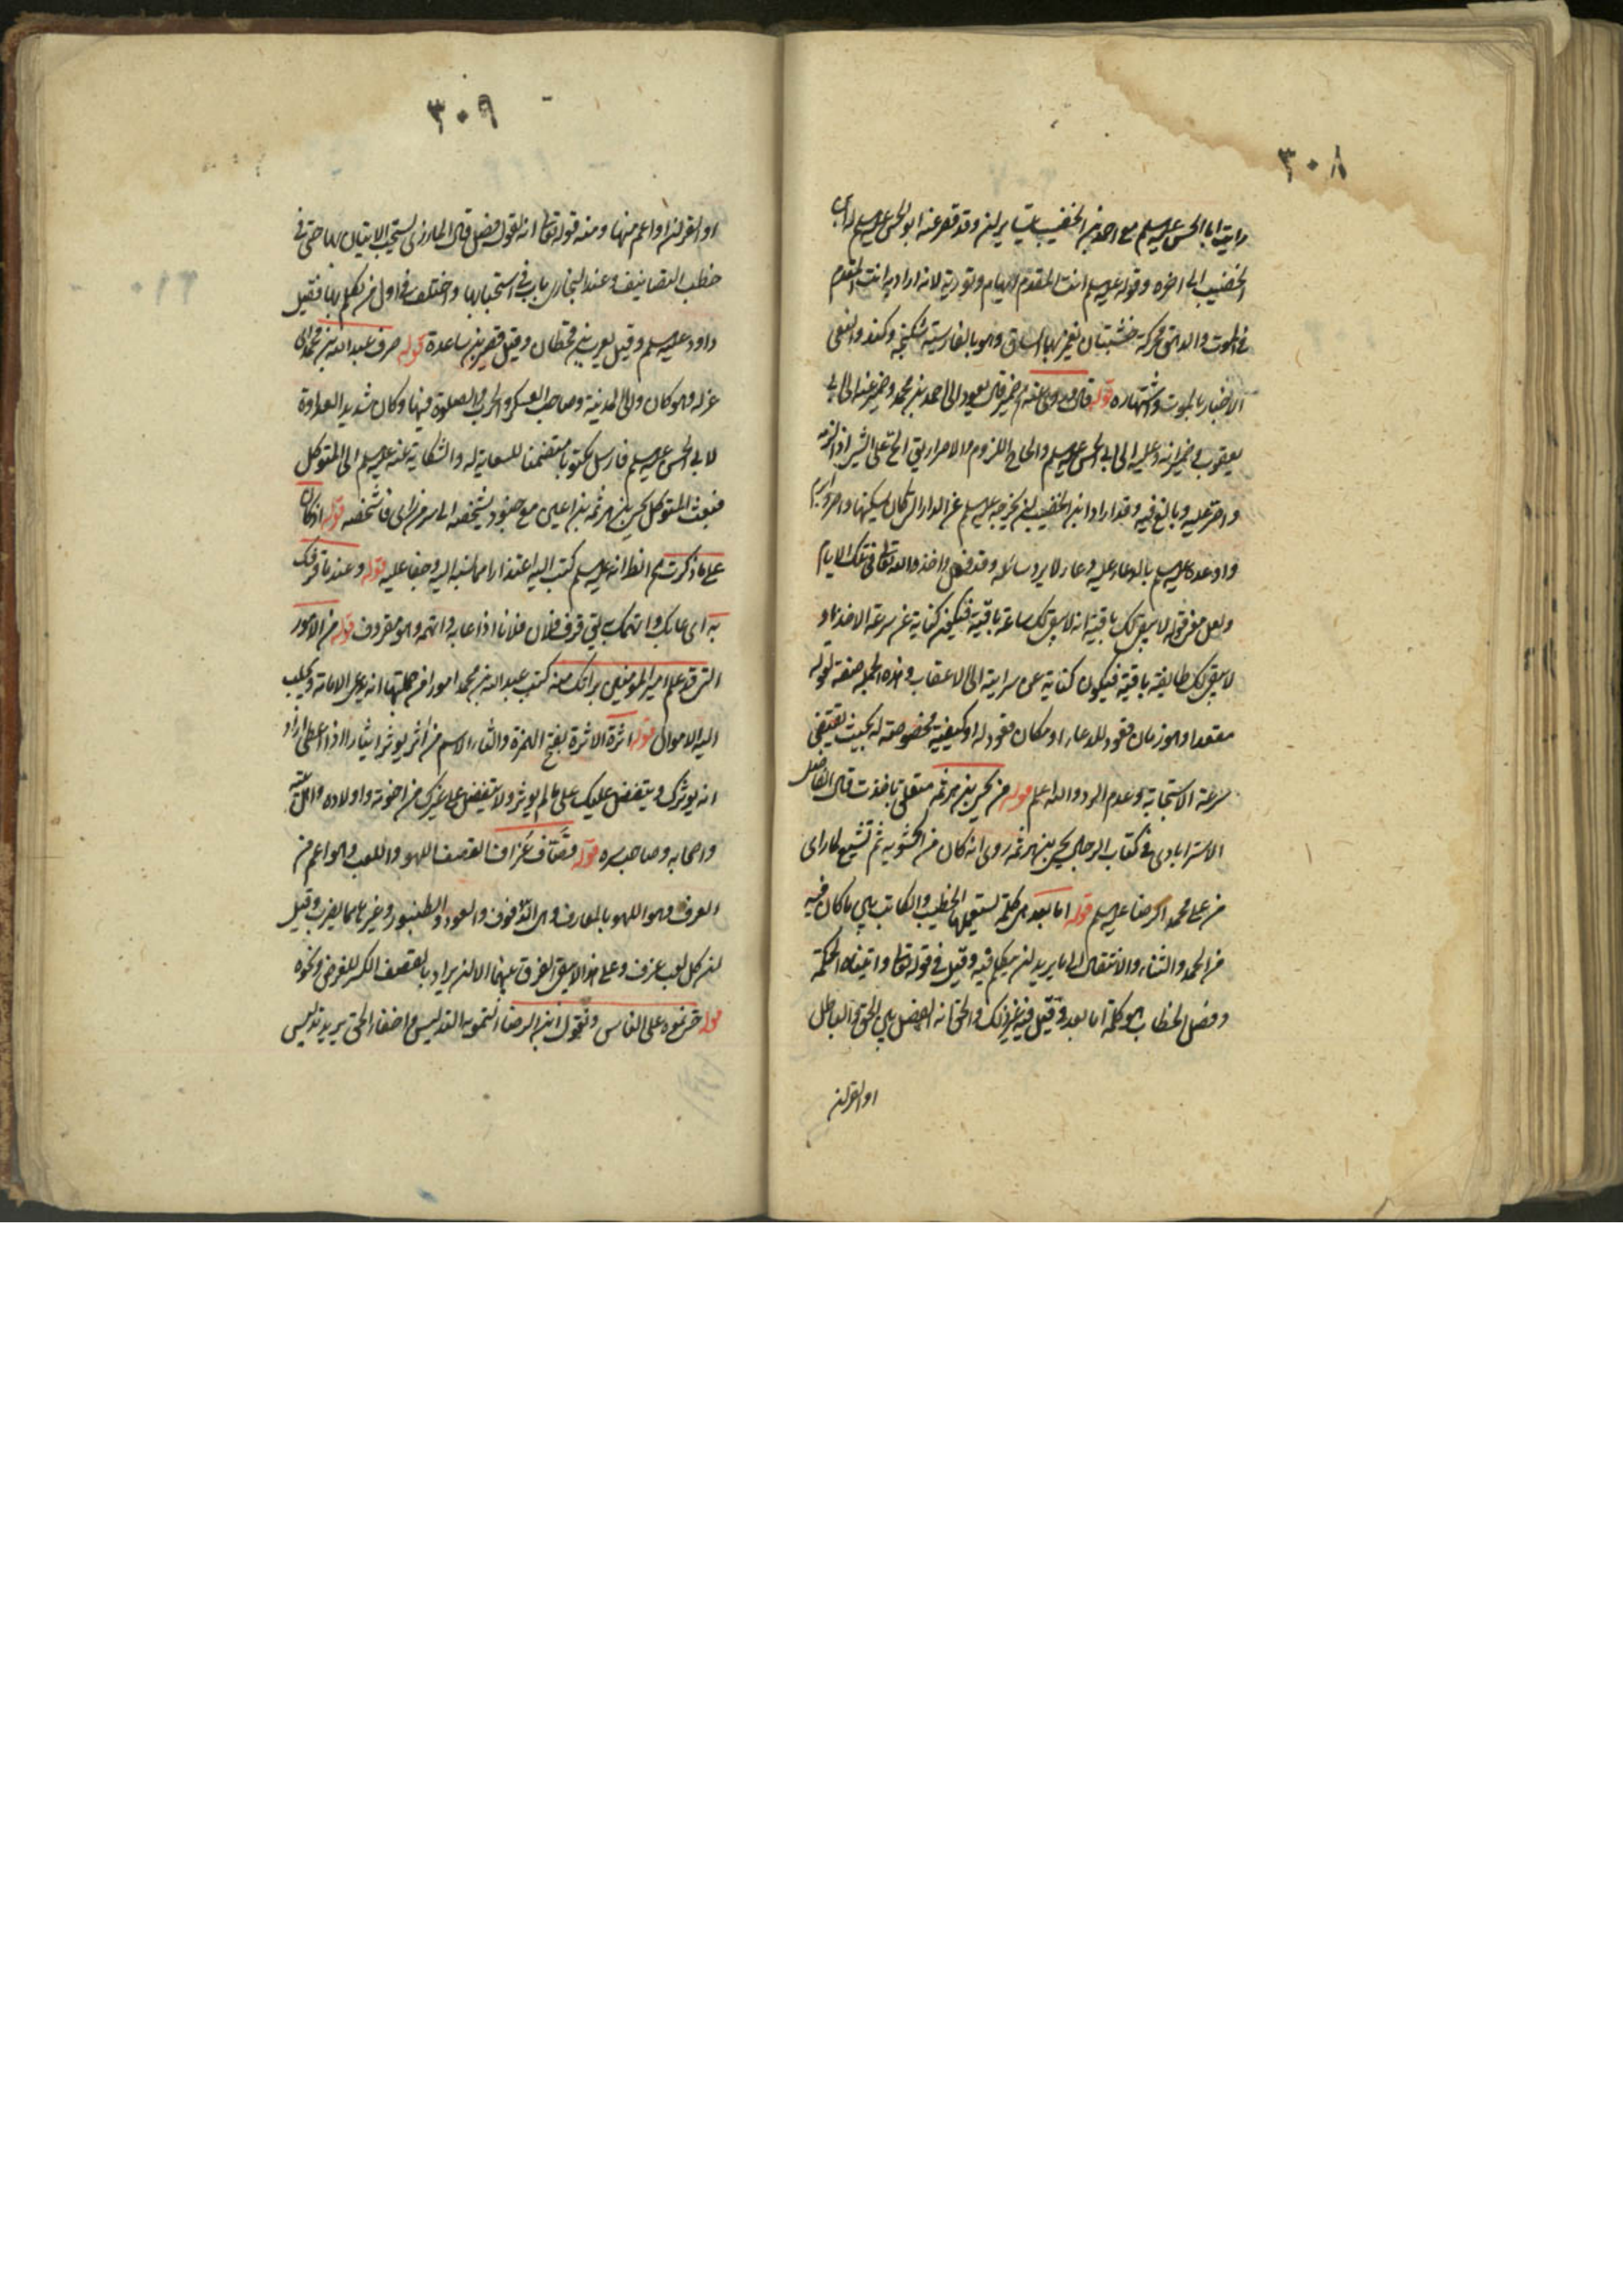 ٣٠٨
رايت ابا الحسن عليه السلم مع احمد بن الخضيب يتسايران وقد قصر عنه ابو الحسن عليه السلم
الخضيب الى اخره وقوله عليه السلم انت المقدم ايهام وتورية لانه اراد به انت المقدم
في الموت والدهق محركة خشبتان يغمز بهما الساق وهو بالفارسية شكنجه وكند والنعي
الاخبار بالموت واشتهاره قوله قال وروى عنه ضمير قال يعود الى احمد بن محمد وضمير عنه الى ابي
يعقوب وضمير انه وعليه الى ابي الحسن عليه السلم والحاح اللزوم والاصرار يق الح على الشئ اذا لزمه
واصر عليه وبالغ فيه وقد اراد ابن الخضيب ان يخرجه عليه السلم عن الدار التي كان يسكنها
واوعده عليه السلم بالدعاء عليه دعاء لا يرد سائله وقد فعل واخذه الله تعالى في تلك الايام
ولعل معنى قوله لا يبقى لك باقية انه لا يبقى لك ساعة باقية فيكون كناية عن سرعة الاخذ او
لا يبقى لك طايفة باقية فيكون كناية عن سراية الى الاعقاب وهذه الجملة صفة لقوله
مقعدا وهو زمان قعود للدعاء او مكان قعود له او كيفية مخصوصة له بحيث يقتضي
سرعة الاستجابة وعدم الرد والله اعلم قوله من يحيى بن هرثمه متعلق باخذت قال الفاضل
الاسترابادي في كتاب الرجال يحيى بن هرثمه روى انه كان من الحشوية ثم تشيع لما راى
من علي بن محمد الرضا عليه السلم قوله اما بعد هي كلمة يستعملها الخطيب والكاتب بين ما كان فيه
من الحمد والثناء والانتقال الى ما يريد ان يتكلم فيه وقيل في قوله تعالى واتيناه الحكمة
وفصل الخطاب هو كلمة اما بعد وقيل فيه غير ذلك والحق انه الفصل بين الحق والباطل
او القران
٣٠٩
او القران او اعم منها ومنه قوله تعالى انه لقول فصل قال المازري يستحب الاتيان بها حتى في
خطب التصانيف وعند البخاري باب في استحبابها واختلف في اول من تكلم بها فقيل
داود عليه السلم وقيل يعرب بن قحطان وقيل قس بن ساعدة قوله صرف عبد الله بن محمد اى
عزله وهو كان والى المدينة وصاحب العسكر والحرب والصلوة فيها وكان شديد العداوة
لابي الحسن عليه السلم فارسل مكتوبا متضمنا للسعاية له والشكاية عنه عليه السلم الى المتوكل
فبعث المتوكل يحيى بن هرثمه بن اعين مع جنود ليشخصه الى سر من راى فاشخصه قوله اذ كان
على ما ذكرت الظ انه عليه السلم كتب اليه اعتذارا مما نسبه اليه وجفا عليه قوله وعند ما قرفك
به اى عابك واتهمك يق قرف فلان فلانا اذا عابه واتهمه وهو مقروف قوله من الامور
التي قد علم امير المؤمنين براتك منه كتب عبد الله بن محمد امورا من جملتها انه يدعى الامامة ويجلب
اليه الاموال قوله اثرة الاثرة بفتح الهمزة والثاء الاسم من آثر يوثر ايثارا اذا اعطى اراد
انه يوثرك ويتفضل عليك على ما لم يوثر ولا يتفضل على غيرك من اخوته واولاده واهل بيته
واصحابه وصاحب سره قوله قصّاف عزّاف القصف اللهو واللعب وهو اعم من
العزف وهو اللهو بالمعازف وهي الدفوف والعود والطنبور وغيرها مما يضرب وقيل
ان كل لعب عزف وعلى هذا لا يبقى الفرق بينهما الا ان يراد بالقصف الكسر للغرض ونحوه
قوله حتى نموه على الناس ونقول ابن الرضا التمويه التدليس واخفاء الحق يريد تدليس